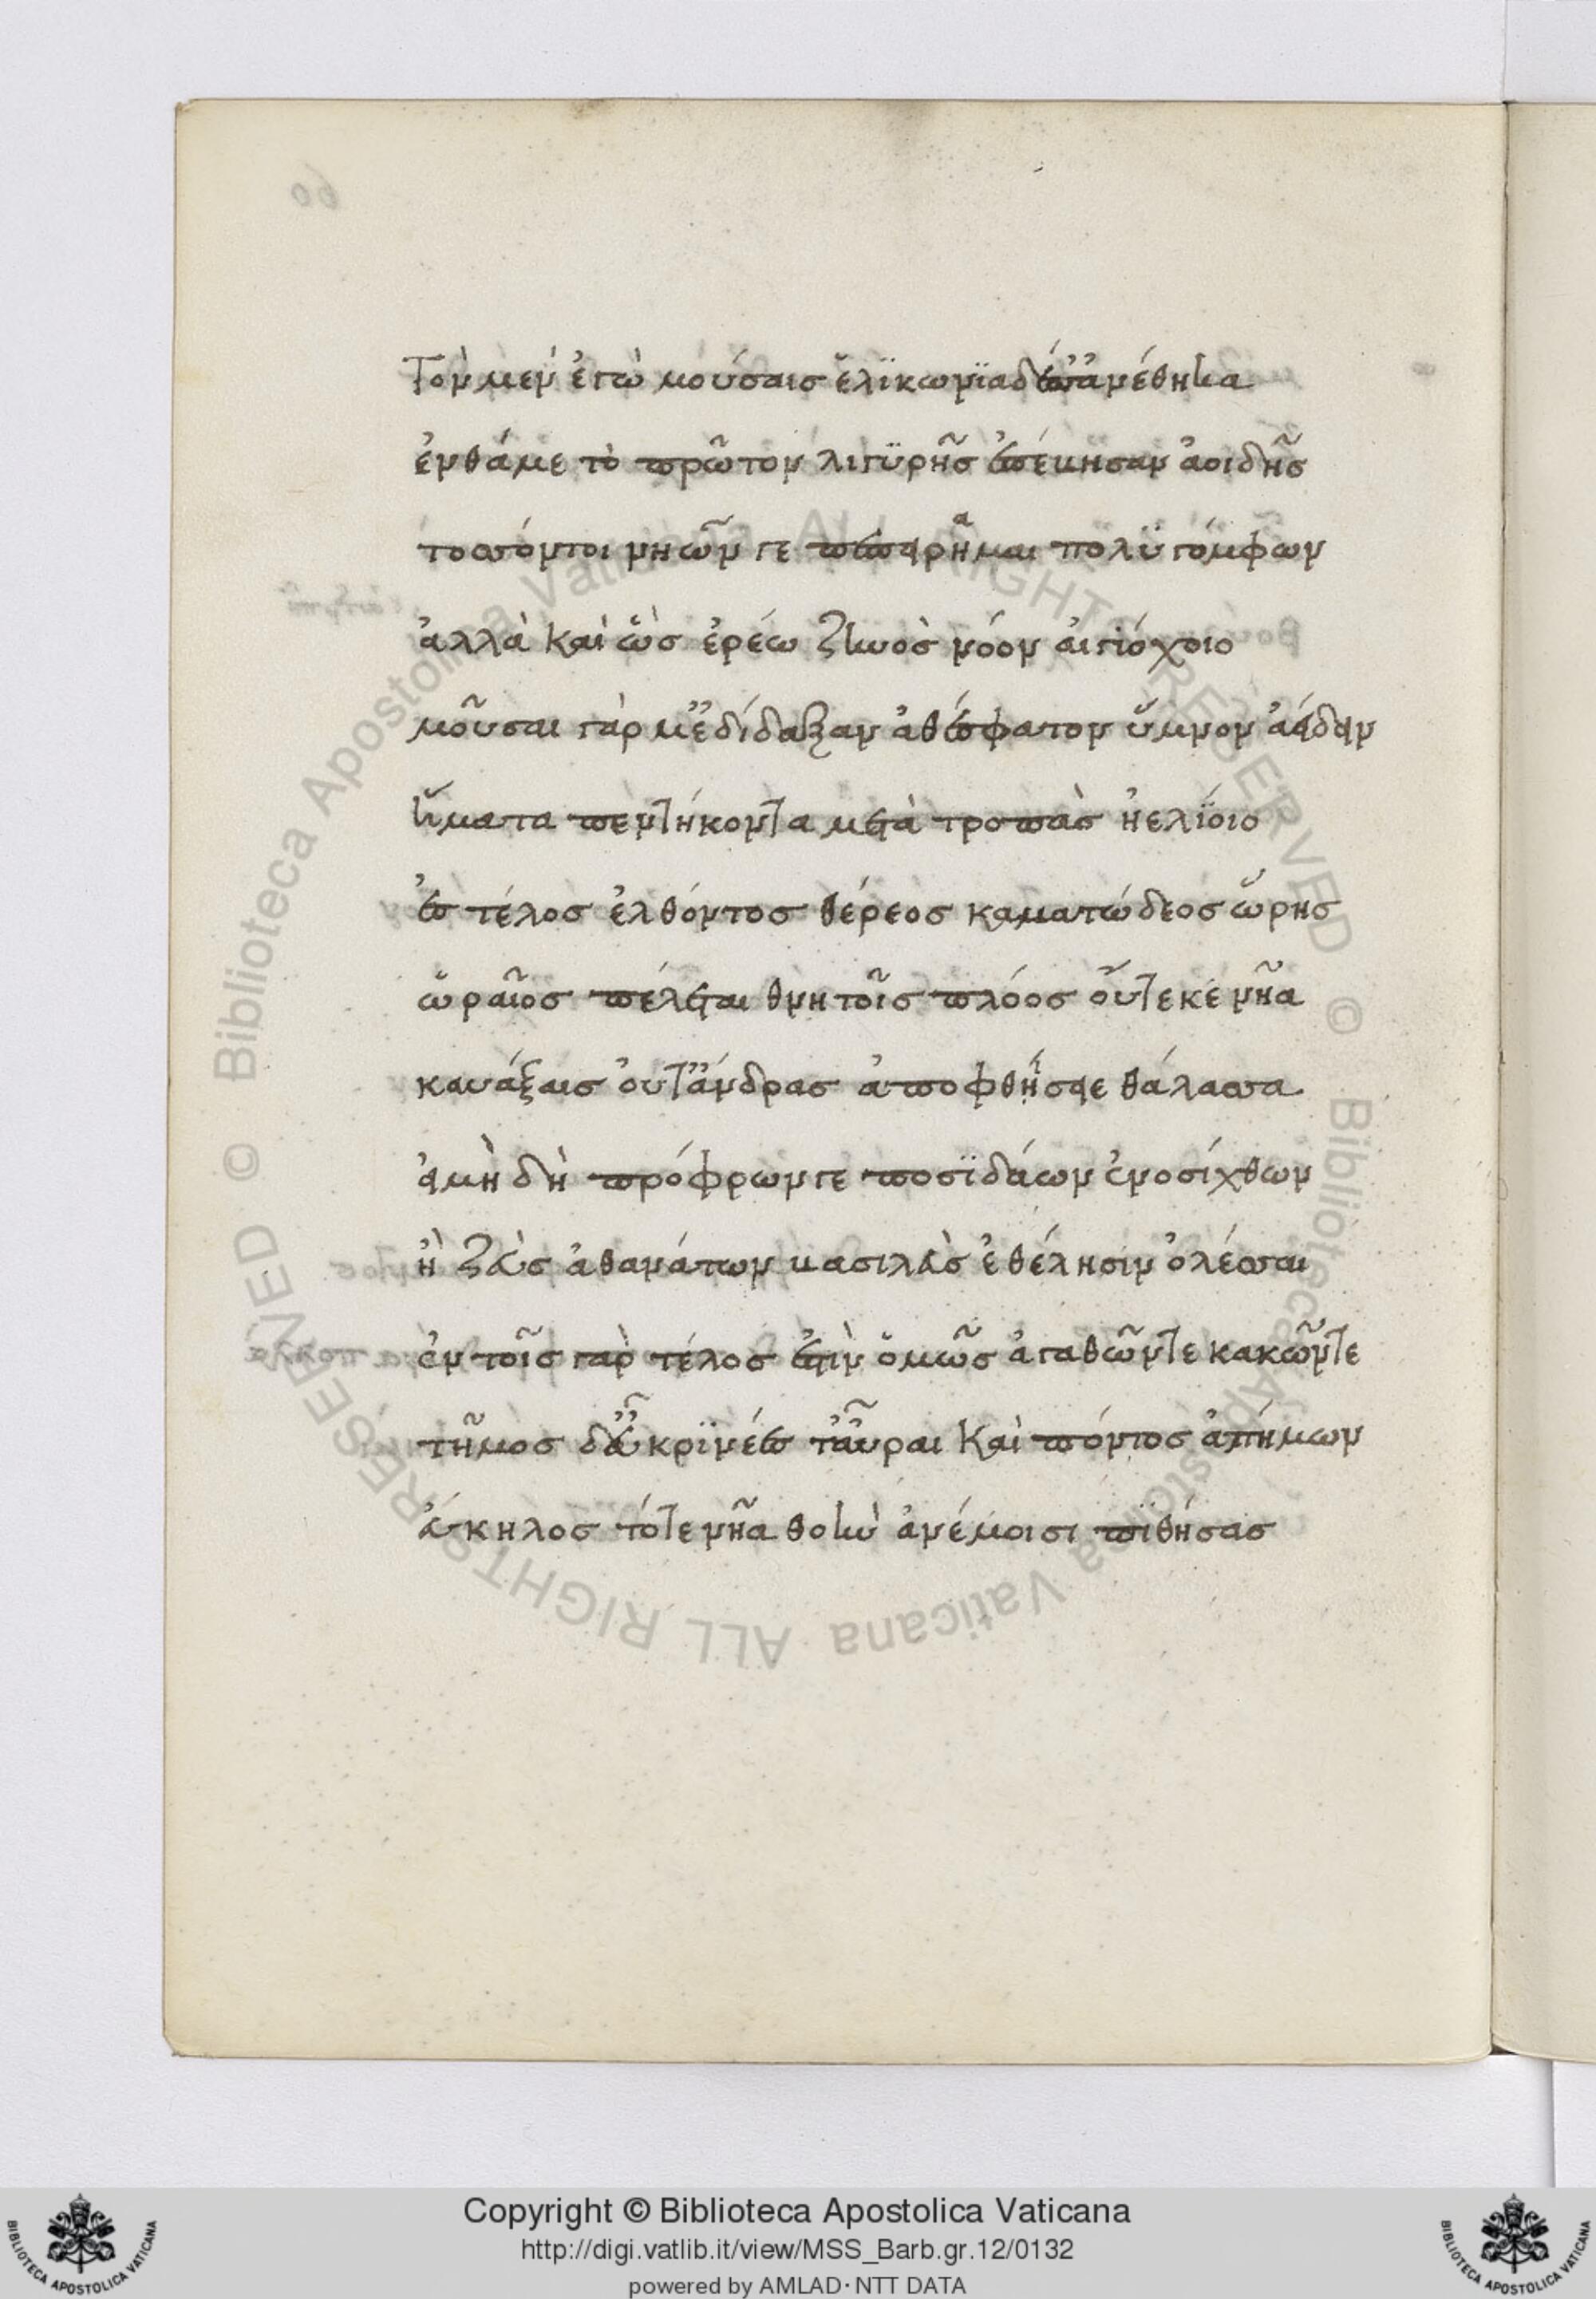 Τὸν μὲν ἐγὼ μούσαις ἑλϊκωνϊάδεσσ' ἀνέθηκα
ἐνθά με τὸ πρῶτον λιγϋρῆς ἐπέβησαν ἀοιδῆς
τοσσόντοι νηῶν γε πεπείρῆμαι πολϋγόμφων
ἀλλὰ καὶ ὣς ἐρέω ζηνὸς νόον αἰγιόχοιο
μοῦσαι γὰρ μ' ἐδίδαξαν ἀθέσφατον ὕμνον ἀείδειν
ἤματα πεντήκοντα μετὰ τροπὰς ἠελϊόιο
ἐς τέλος ἐλθόντος θέρεος καματώδεος ὥρης
ὡραῖος πέλεται θνητοῖς πλόος οὔτέ κε νῆα
καυάξαις οὐτ' ἄνδρας ἀποφθήσειε θάλασσα
εἰ μὴ δὴ πρόφρων γε ποσϊδάων ἐνοσίχθων
ἢ ζεὺς ἀθανάτων βασιλεὺς ἐθέλησιν ὀλέσσαι
ἐν τοῖς γὰρ τέλος ἐστὶν ὁμῶς ἀγαθῶν τε κακῶν τε
τῆμος δ' εὐκρϊνέες τ' αὖραι καὶ πόντος ἀπήμων
εὔκηλος τότε νῆα θοὴν ἀνέμοισι πϊθήσας
Copyright © Biblioteca Apostolica Vaticana
http://digi.vatlib.it/view/MSS_Barb.gr.12/0132
powered by AMLAD·NTT DATA